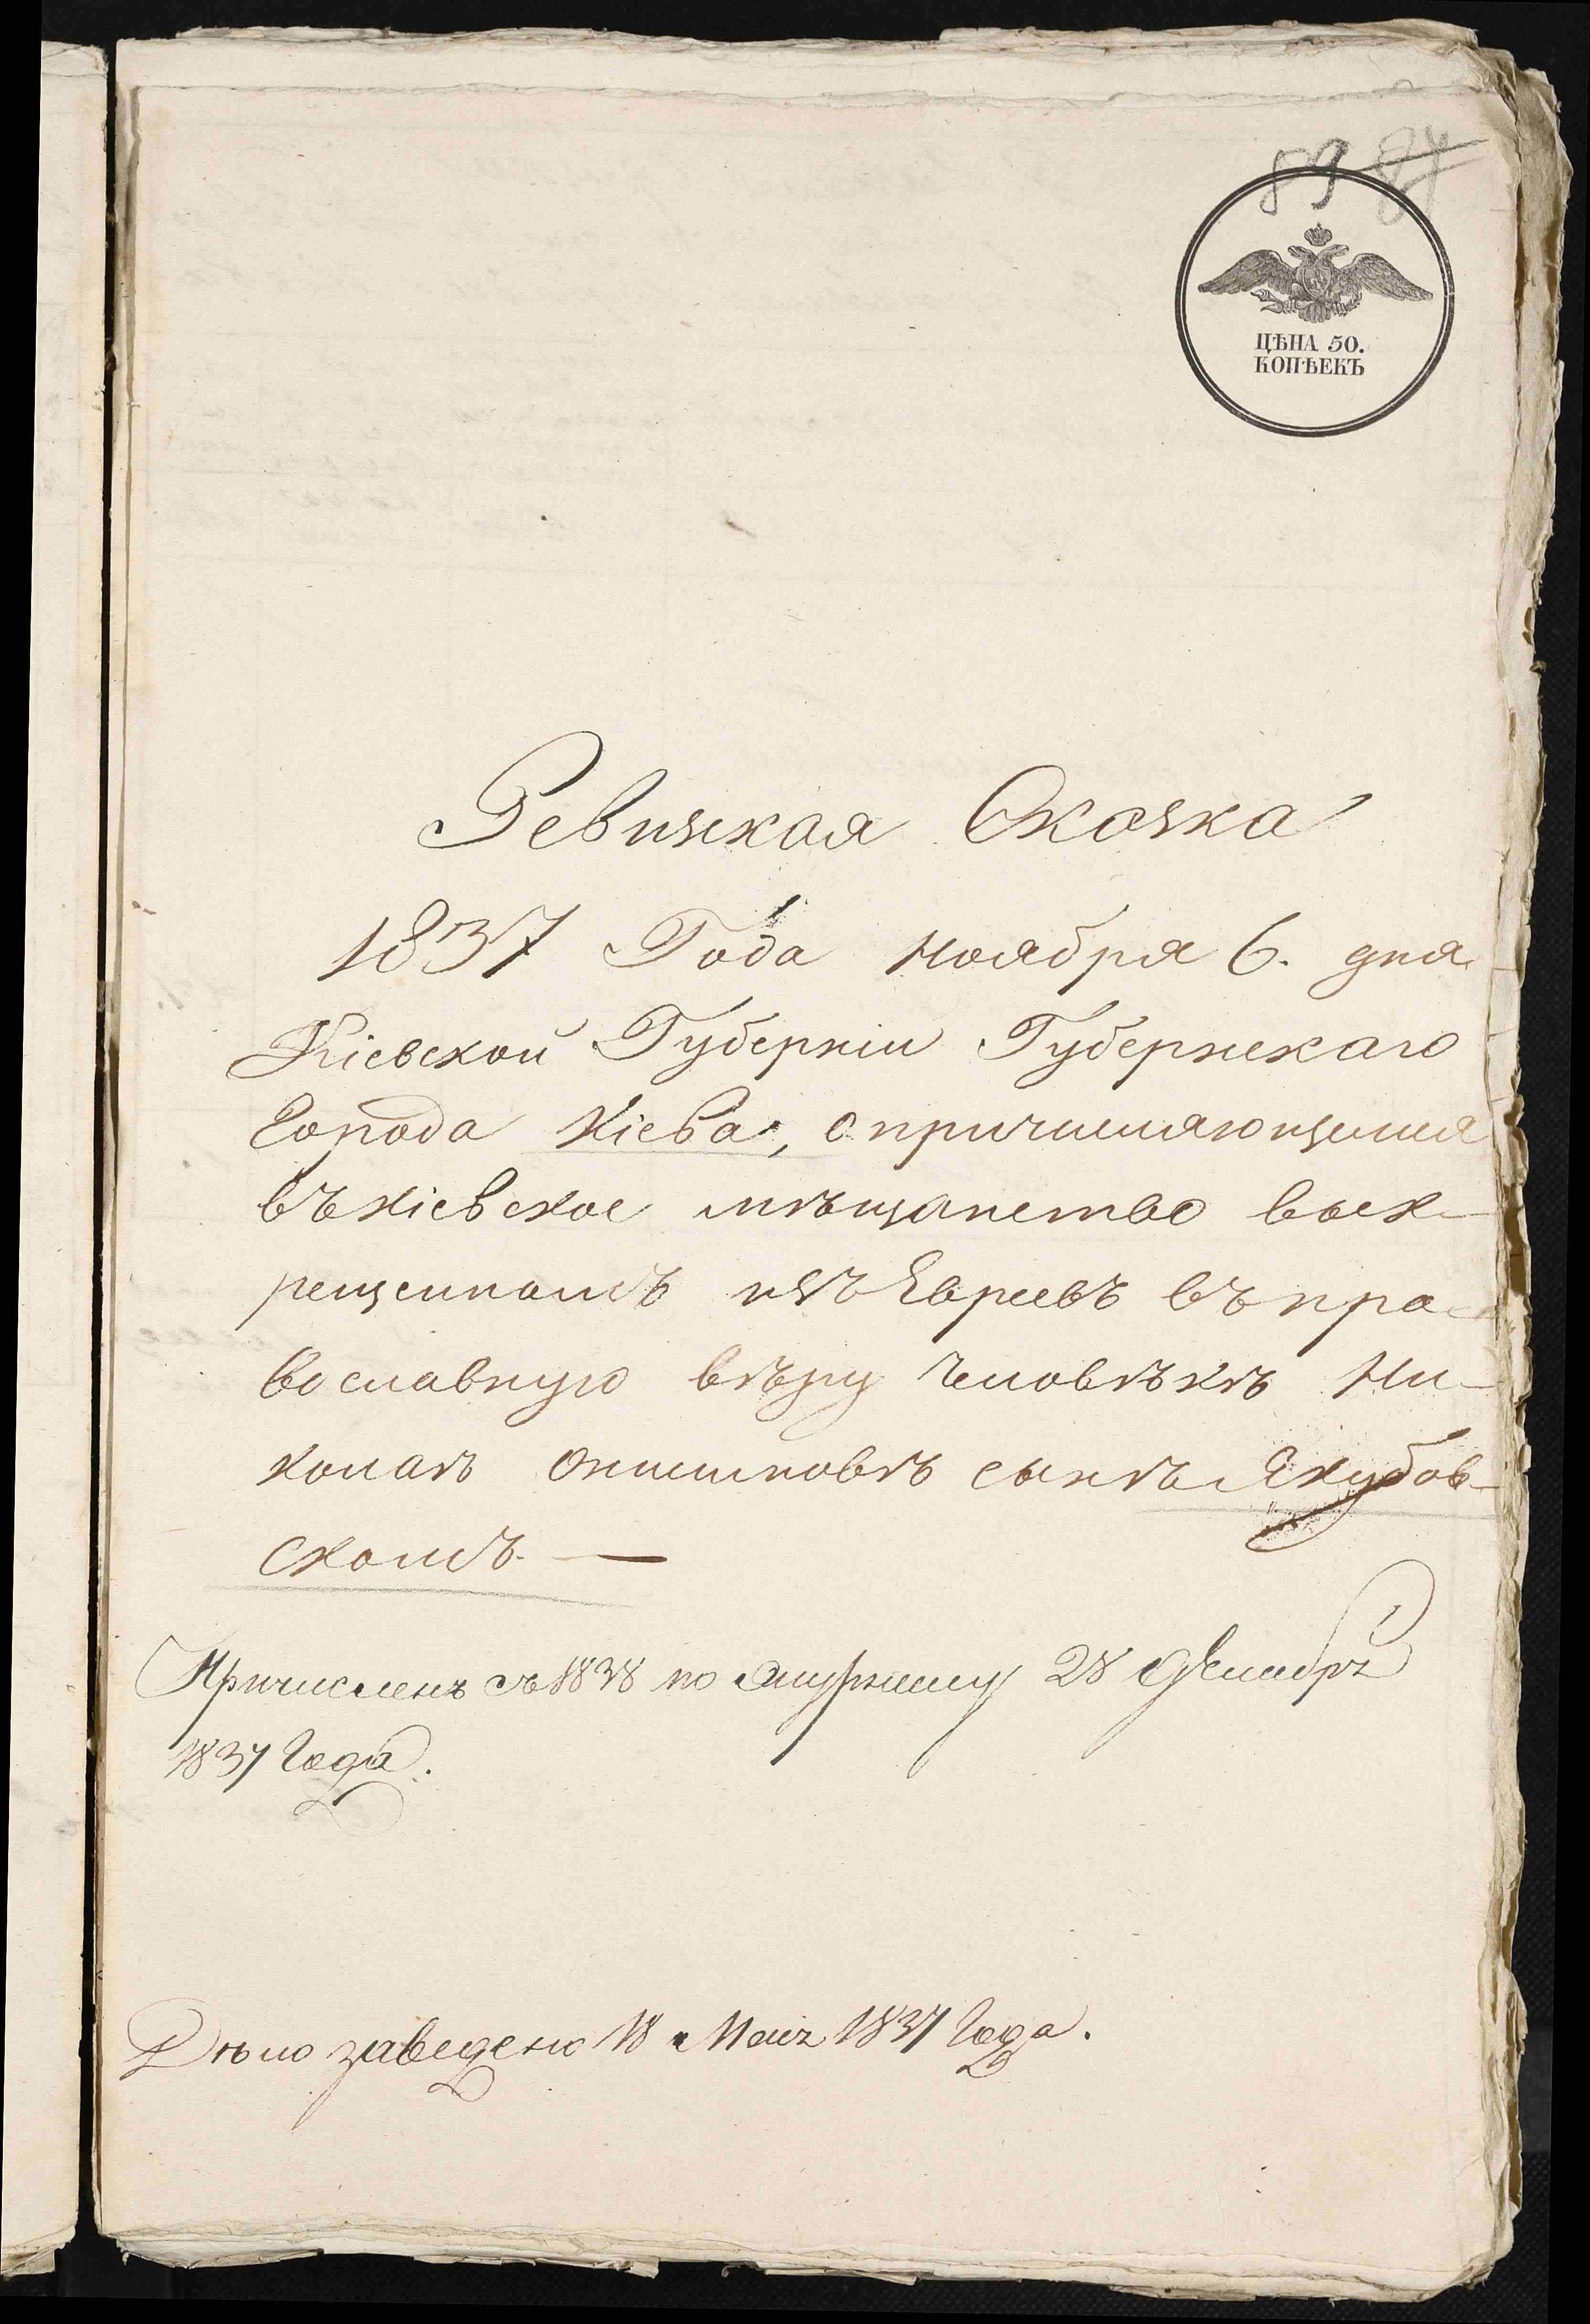 89 87
ЦѢНА 50.
КОПѢЕКЪ
Ревизская Скозка
1837 Года Ноября 6. дня
Кіевской Губерніи Губернскаго
Города Кіева, о причисляющимся
въ кіевское мѣщанство вык-
рещенномъ изъ Евреевъ въ пра-
вославную вѣру человѣкѣ Ни-
колаѣ сынѣ Якубов-
скомъ. —
Причисленъ съ 1838 по журналу 28 Декабря
1837 Года.
Дѣло заведено 18 Маія 1837 Года.